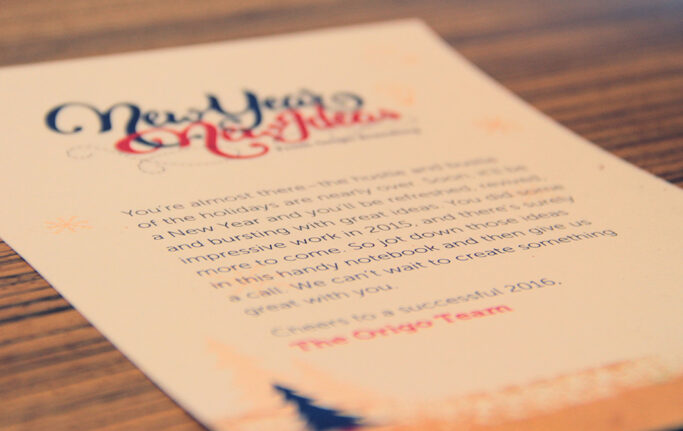 New Year
New Ideas
You're almost there—the hustle and bustle
of the holidays are nearly over. Soon, it'll be
a New Year and you'll be refreshed, revived,
and bursting with great ideas. You did some
impressive work in 2015, and there's surely
more to come. So jot down those ideas
in this handy notebook and then give us
a call. We can't wait to create something
great with you.
Cheers to a successful 2016,
The Origo Team